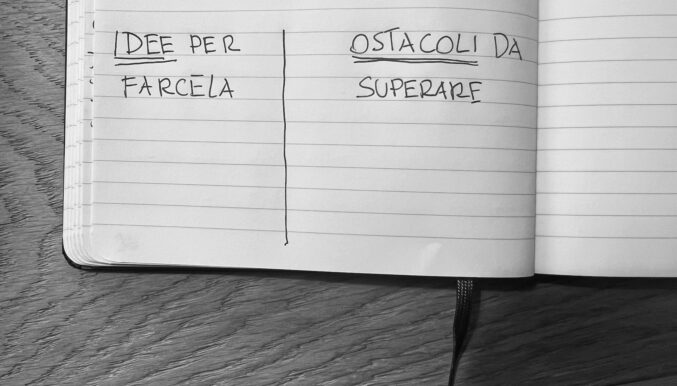 IDEE PER
FARCELA
OSTACOLI DA
SUPERARE